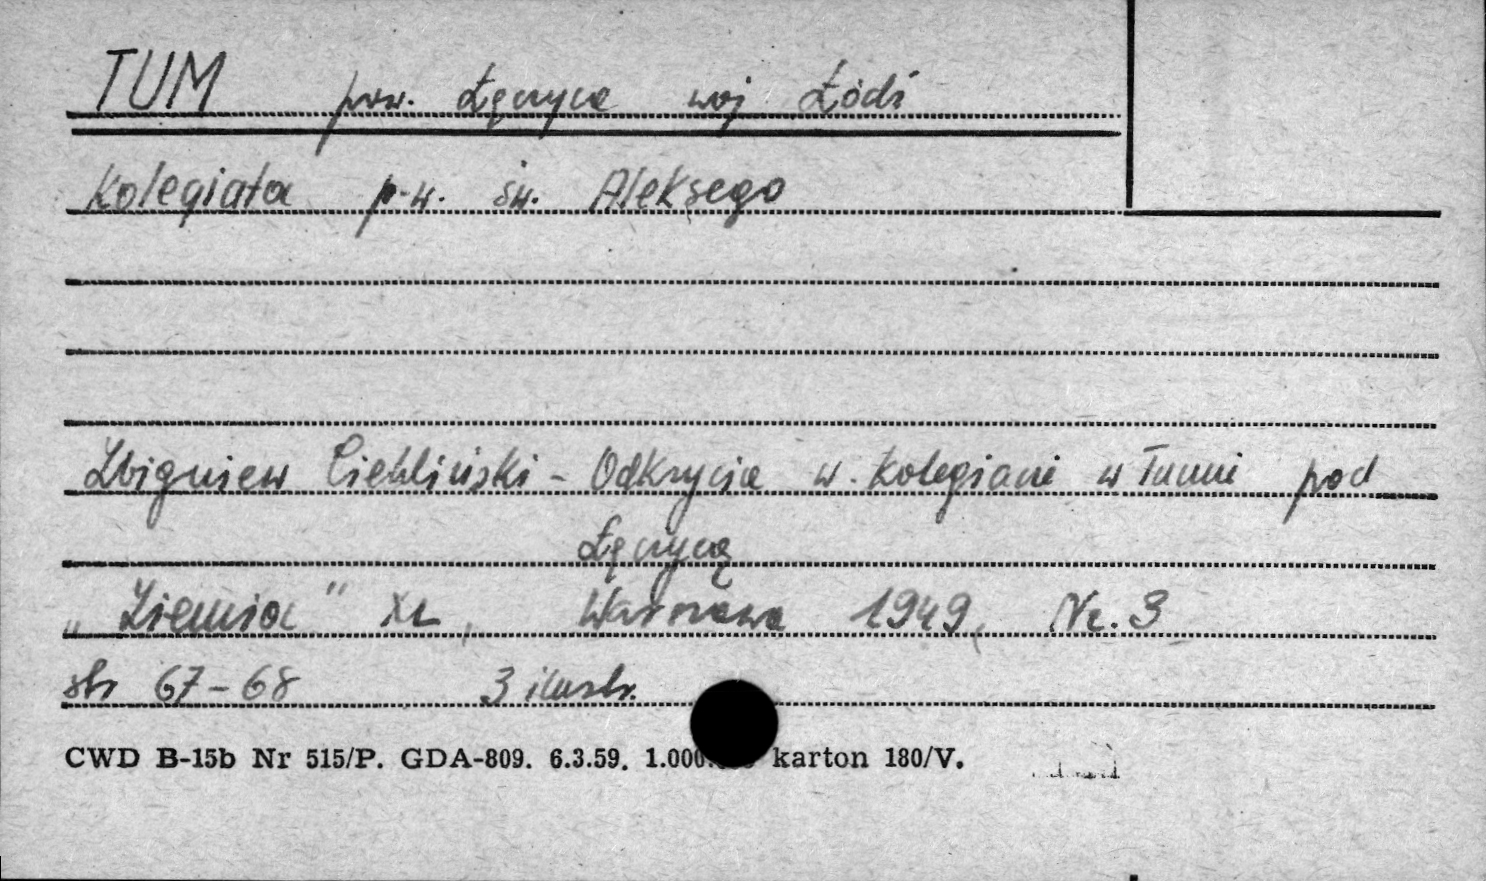 TUM pow. Łęczyca woj Łódź
Kolegiata p.w. św. Aleksego
Zbigniew Ciekliński - Odkrycia w kolegiacie w Tumie pod
Łęczycą
„Ziemia" XL, Warszawa 1949, Nr. 3
str 67-68 3 ilustr.
CWD B-15b Nr 515/P. GDA-809. 6.3.59. karton 180/V.